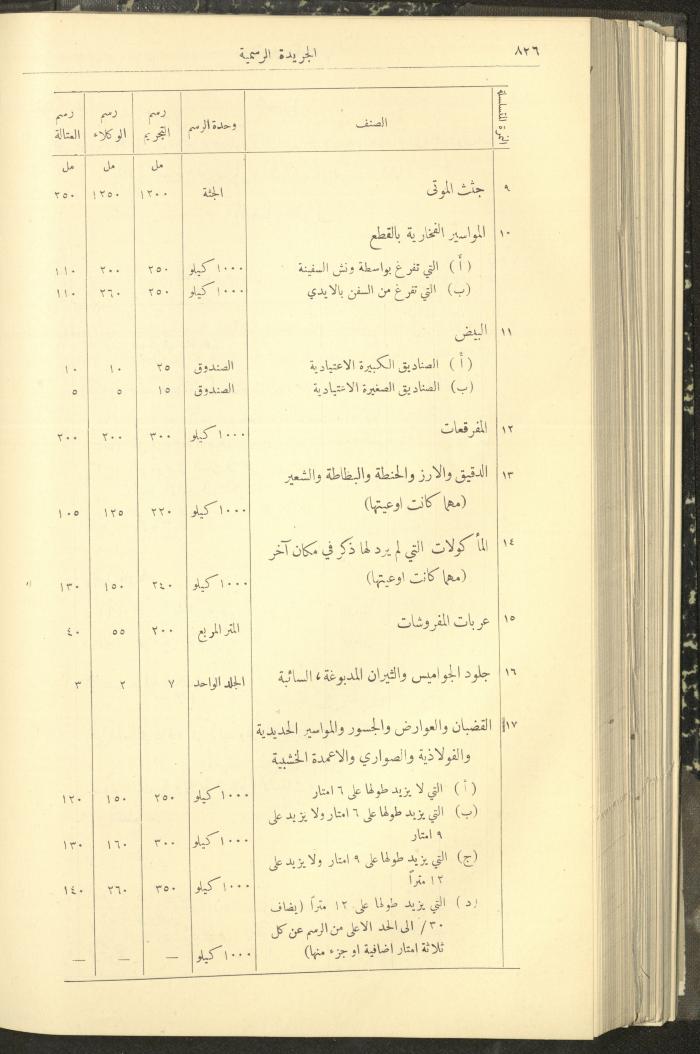 ٨٢٦ الجريدة الرسمية
النمرة المتسلسلة | الصنف | وحدة الرسم | رسم التجريم | رسم الوكلاء | رسم العتالة
مل | مل | مل
٩ | جثث الموتى | الجثة | ١٢٠٠ | ١٢٥٠ | ٢٥٠
١٠ | المواسير الفخارية بالقطع
(أ) التي تفرغ بواسطة ونش السفينة | ١٠٠٠ كيلو | ٢٥٠ | ٢٠٠ | ١١٠
(ب) التي تفرغ من السفن بالايدي | ١٠٠٠ كيلو | ٢٥٠ | ٢٦٠ | ١١٠
١١ | البيض
(أ) الصناديق الكبيرة الاعتيادية | الصندوق | ٢٥ | ١٠ | ١٠
(ب) الصناديق الصغيرة الاعتيادية | الصندوق | ١٥ | ٥ | ٥
١٢ | المفرقعات | ١٠٠٠ كيلو | ٣٠٠ | ٢٠٠ | ٢٠٠
١٣ | الدقيق والارز والحنطة والبطاطة والشعير
(مهما كانت اوعيتها) | ١٠٠٠ كيلو | ٢٢٠ | ١٢٥ | ١٠٥
١٤ | المأكولات التي لم يرد لها ذكر في مكان آخر
(مهما كانت اوعيتها) | ١٠٠٠ كيلو | ٢٤٠ | ١٥٠ | ١٣٠
١٥ | عربات المفروشات | المتر المربع | ٢٠٠ | ٥٥ | ٤٠
١٦ | جلود الجواميس والثيران المدبوغة، السائبة | الجلد الواحد | ٧ | ٢ | ٣
١٧ | القضبان والعوارض والجسور والمواسير الحديدية
والفولاذية والصواري والاعمدة الخشبية
(أ) التي لا يزيد طولها على ٦ امتار | ١٠٠٠ كيلو | ٢٥٠ | ١٥٠ | ١٢٠
(ب) التي يزيد طولها على ٦ امتار ولا يزيد على
٩ امتار | ١٠٠٠ كيلو | ٣٠٠ | ١٦٠ | ١٣٠
(ج) التي يزيد طولها على ٩ امتار ولا يزيد على
١٢ متراً | ١٠٠٠ كيلو | ٣٥٠ | ٢٦٠ | ١٤٠
(د) التي يزيد طولها على ١٢ متراً (يضاف
٣٠٪ الى الحد الاعلى من الرسم عن كل
ثلاثة امتار اضافية او جزء منها) | ١٠٠٠ كيلو | — | — | —